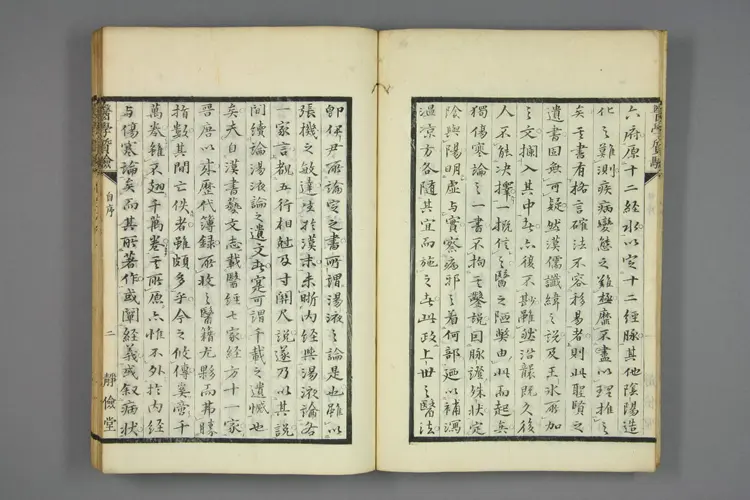 六府原十二經水以定十二經脉其他陰陽造
化之難測疾病變態之難極靡不盡以理推之
矣其書有格言確法不容移易者則此聖賢之
遺書固無可疑然漢儒讖緯之說及王氷所加
之文攔入其中古今後不斟雖然沿襲既久後
人不能決擇一概信之醫之陋弊由此而起矣
獨傷寒論之一書不拘其鑿說因脉證殊狀定
陰與陽明虛與實察病邪之着何部廼以補瀉
溫凉方各隨其宜而施之古此政上世之醫法
卽伊尹所論定之書所謂湯液之論是也雖以
張機之敏達生於漢末未晰內經與湯液論各
一家言觀五行相尅及寸關尺說遂乃以其說
間續論湯液論之遺文者寔可謂千載之遺憾也
矣夫自漢書藝文志載醫經七家經方十一家
晉唐以來歷代簿錄所收之醫籍尤夥而弗勝
指數其間亡佚者雖頗多乎今之攸傳奚啻千
萬卷雖不翅千萬卷其所原亦惟不外於內經
与傷寒論矣而其所著作或闡經義或叙病狀
醫學質驗
自序
二
靜儉堂